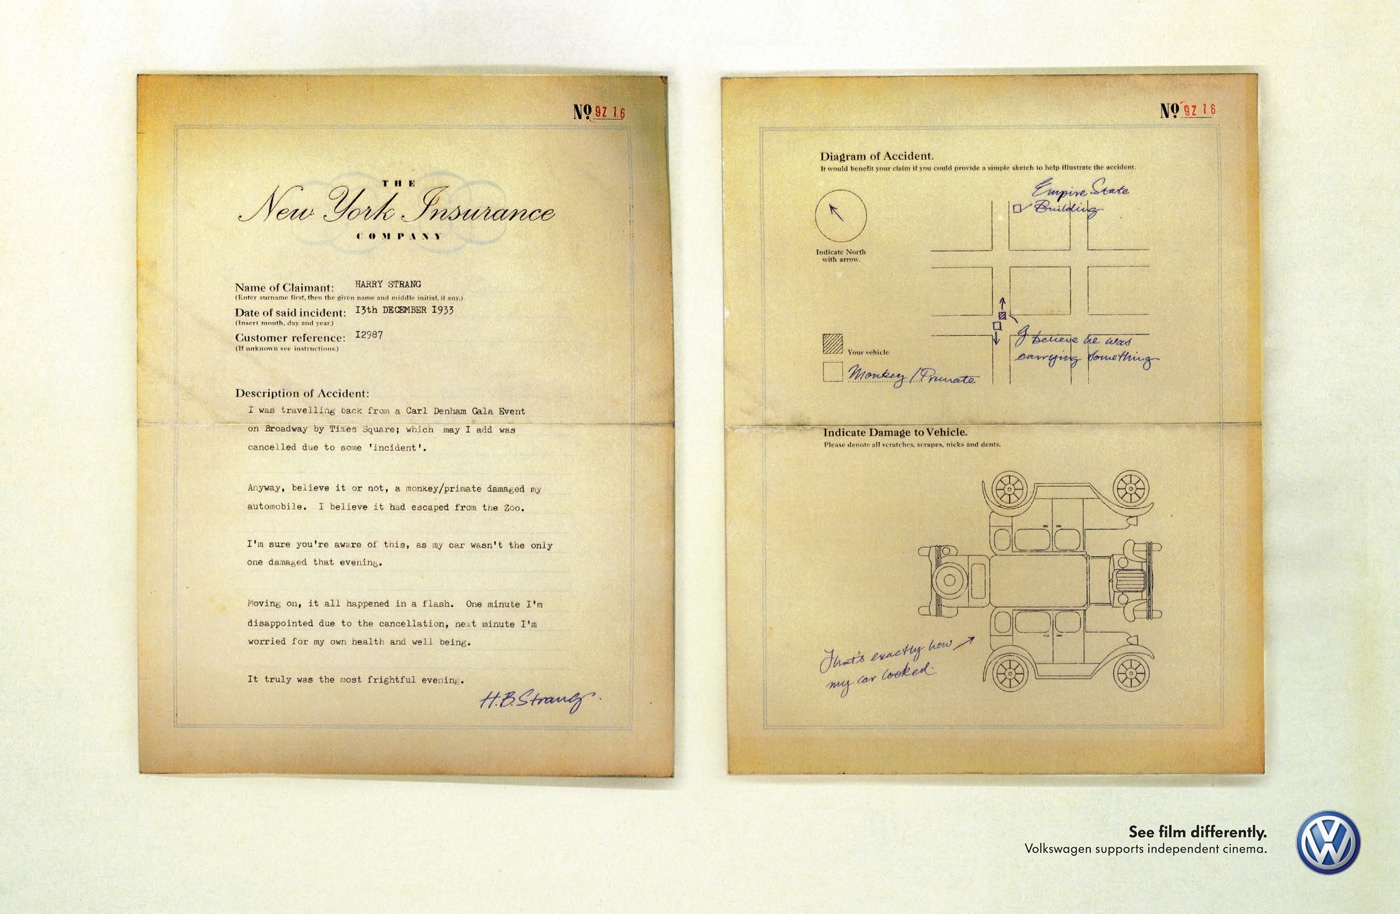 No 9Z 16
THE
New York Insurance
COMPANY
Name of Claimant: HARRY STRANG
(Enter surname first, then the given name and middle initial, if any.)
Date of said incident: 13th DECEMBER 1933
(Insert month, day and year.)
Customer reference: I2987
(If unknown see instructions.)
Description of Accident:
I was travelling back from a Carl Denham Gala Event
on Broadway by Times Square; which may I add was
cancelled due to some 'incident'.
Anyway, believe it or not, a monkey/primate damaged my
automobile. I believe it had escaped from the Zoo.
I'm sure you're aware of this, as my car wasn't the only
one damaged that evening.
Moving on, it all happened in a flash. One minute I'm
disappointed due to the cancellation, next minute I'm
worried for my own health and well being.
It truly was the most frightful evening.
H.B.Strang.
No 9Z 16
Diagram of Accident.
It would benefit your claim if you could provide a simple sketch to help illustrate the accident.
Empire State
Building
Indicate North
with arrow.
I believe he was
carrying something
Your vehicle
Monkey / Primate
Indicate Damage to Vehicle.
Please denote all scratches, scrapes, nicks and dents.
That's exactly how
my car looked.
See film differently.
Volkswagen supports independent cinema.
VW